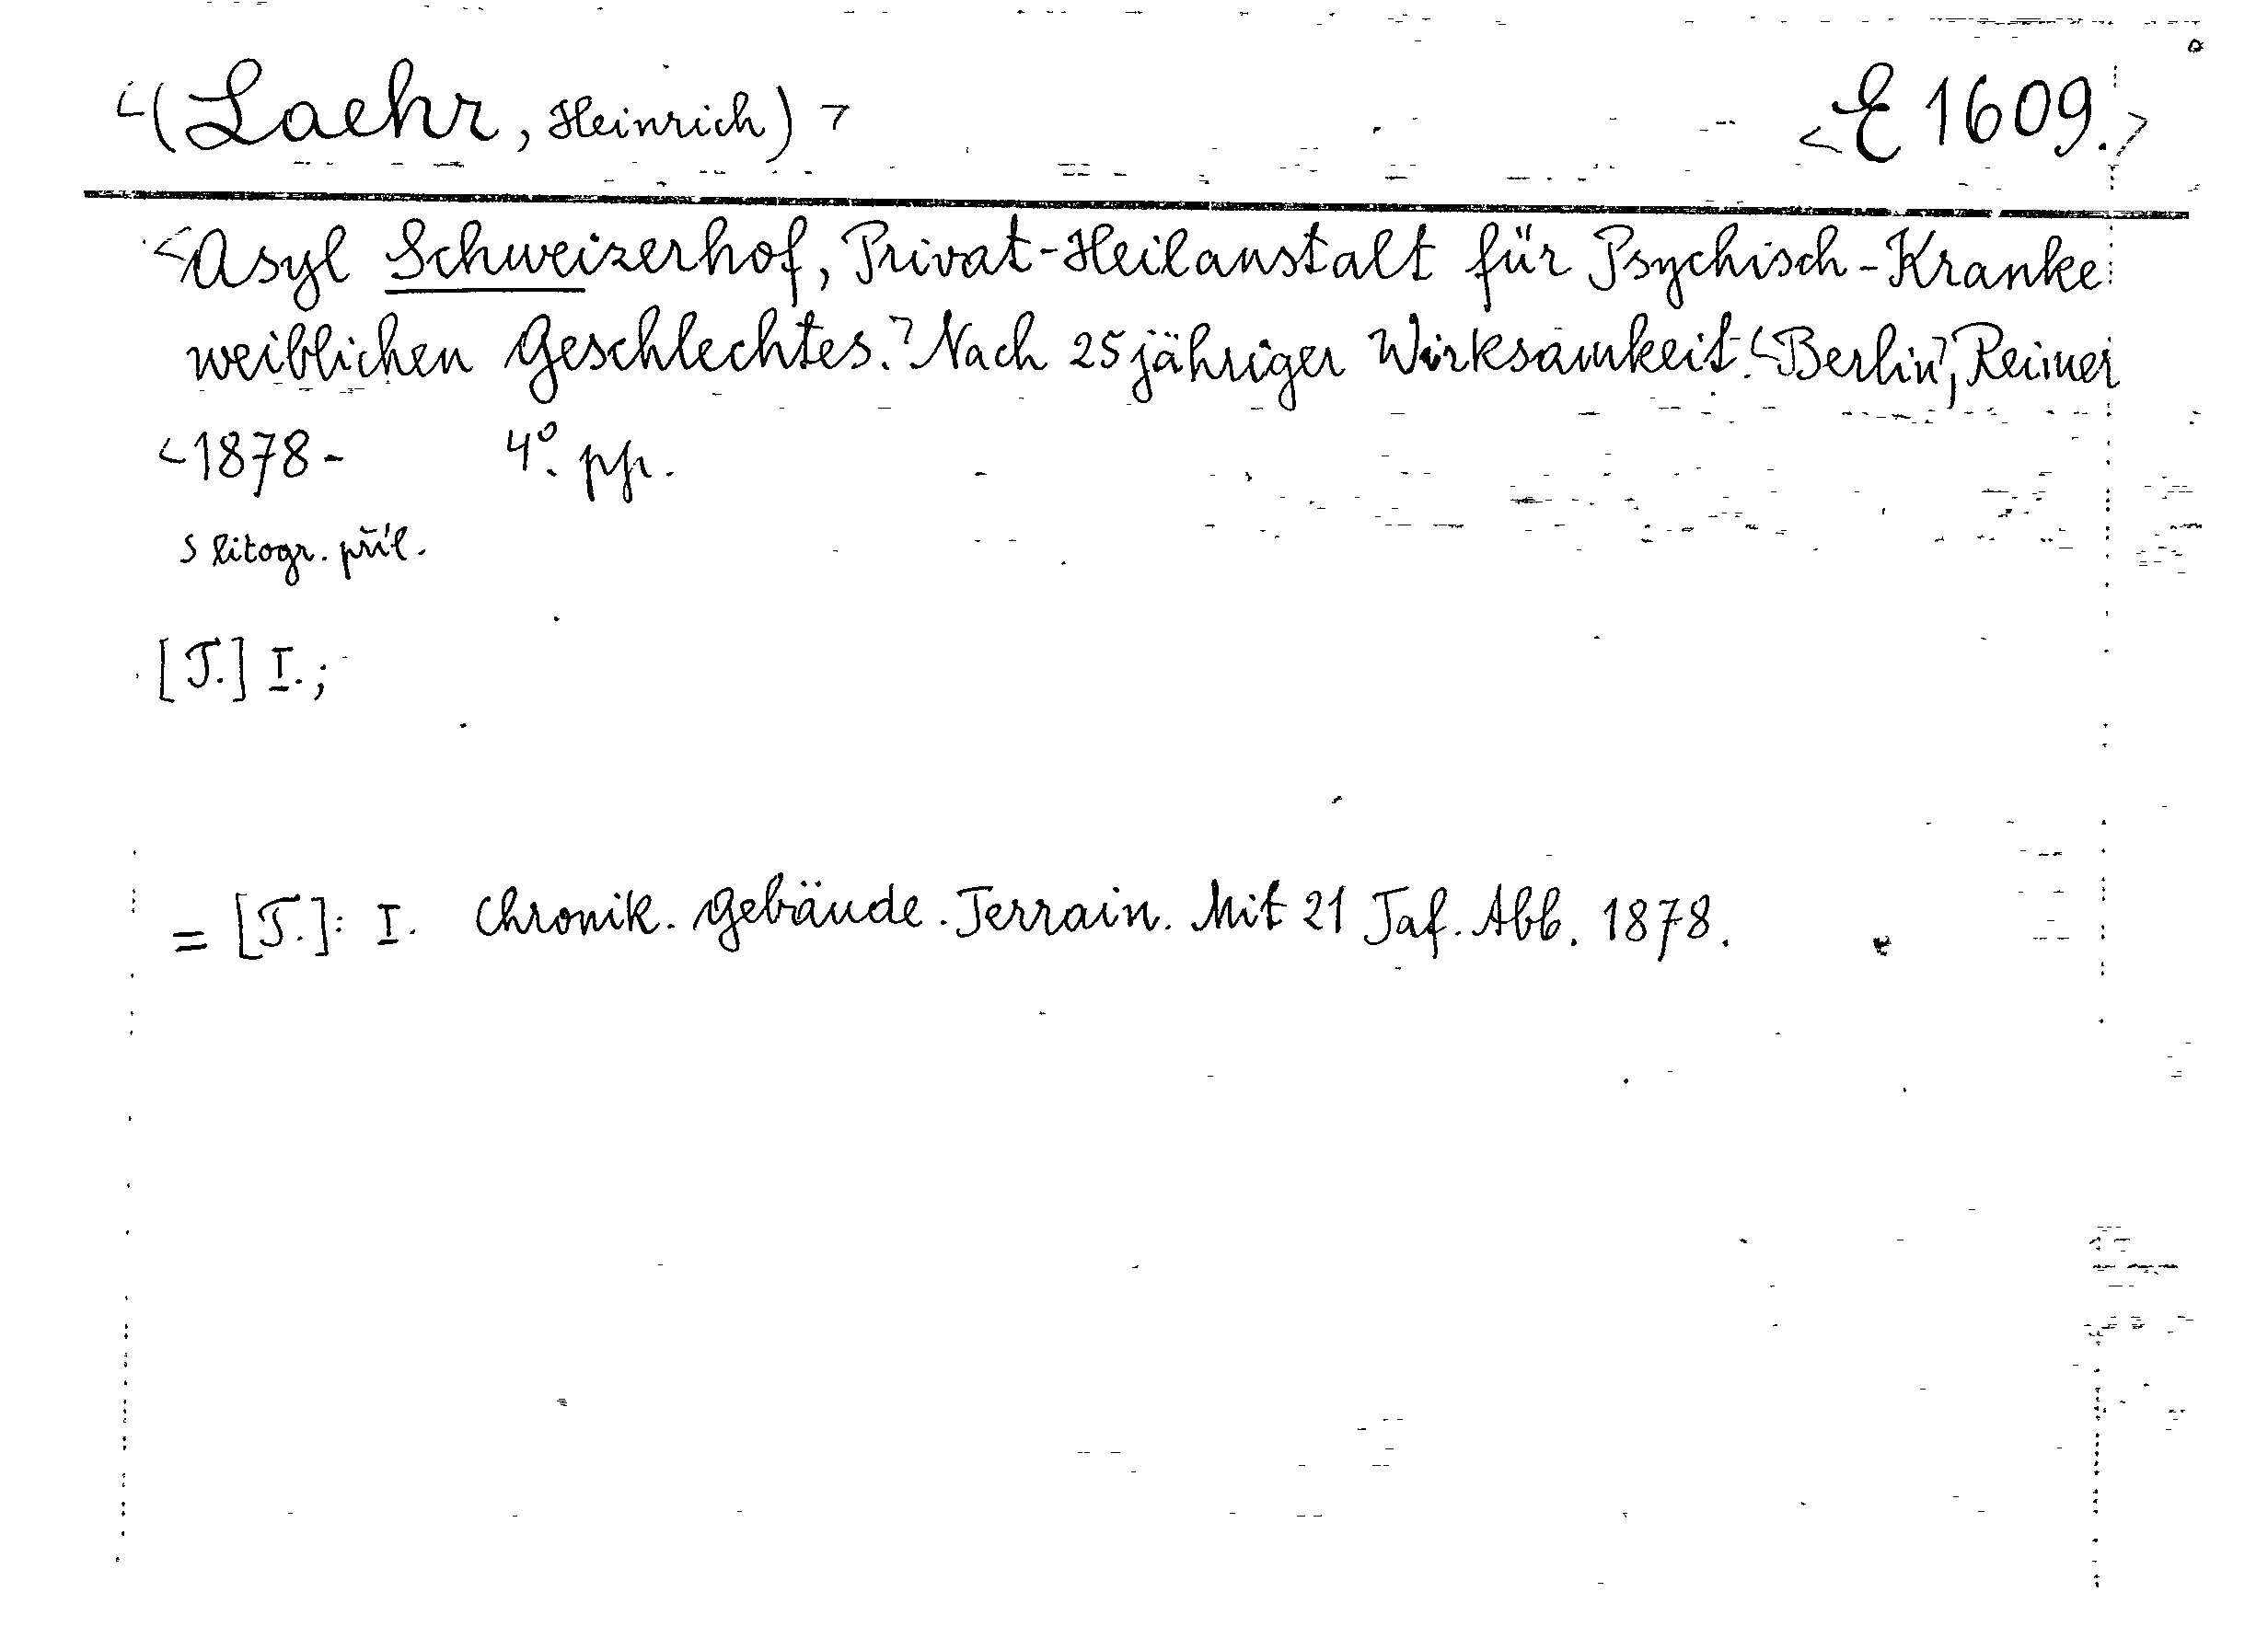 <(Laehr, Heinrich)> <E 1609.>
<Asyl Schweizerhof, Privat-Heilanstalt für Psychisch-Kranke
weiblichen Geschlechtes.> Nach 25jähriger Wirksamkeit. <Berlin>, Reimer
<1878- 4°. pp.
s litogr. příl.
[T.] I.;
= [T.]: I. Chronik. Gebäude. Terrain. Mit 21 Taf. Abb. 1878.